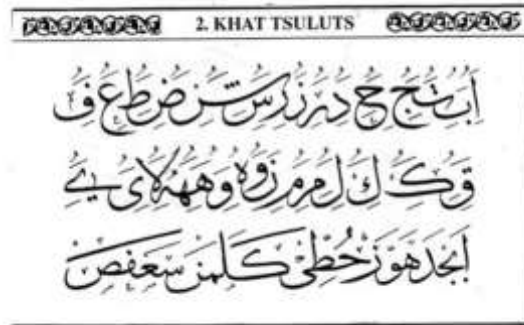 2. KHAT TSULUTS
ا ب ت ج ح د ر ز س ش ض ط ع ف
ق ك ل م و ه لا ى ي
ابجد هوز حطي كلمن سعفص